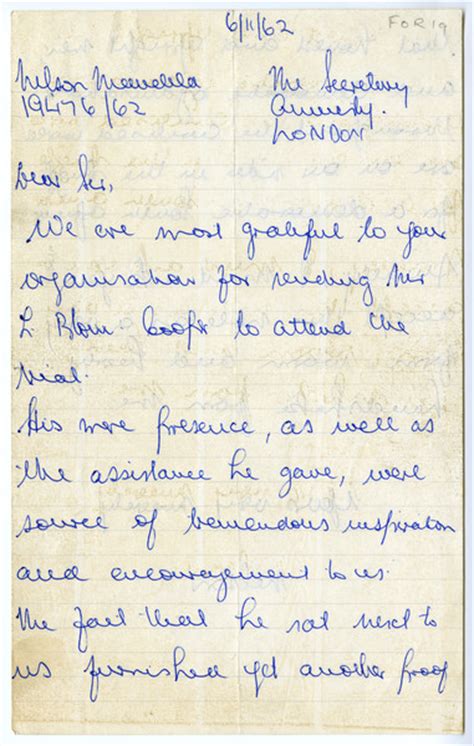 6/11/62
FOR 19
Nelson Mandela
19476/62
The Secretary
Amnesty.
LONDON
Dear Sir,
We are most grateful to your
organisation for sending Mr
L Blom Cooper to attend the
trial.
His mere presence, as well as
the assistance he gave, were
source of tremendous inspiration
and encouragement to us.
The fact that he sat next to
us furnished yet another proof